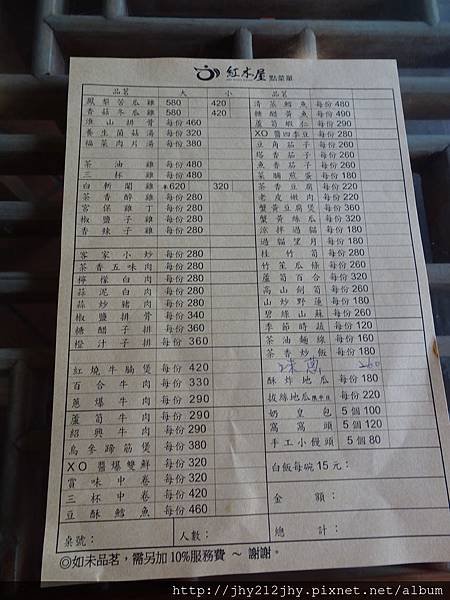 紅木屋 點菜單
品茗 大 小
鳳梨苦瓜雞 580 420
香菇冬瓜雞 580 420
淮山排骨 每份460
養生菌菇湯 每份320
福菜肉片湯 每份380
茶油雞
三杯雞
白斬閹雞 620 320
茶香醉雞 每份280
宮保雞丁 每份280
椒鹽子雞 每份280
香辣子雞 每份280
客家小炒 每份280
茶香五味肉 每份280
檸檬白肉 每份280
蒜泥白肉 每份280
蒜炒豬肉 每份280
椒鹽排骨 每份340
糖醋子排 每份360
橙汁子排 每份360
紅燒牛腩煲 每份420
百合牛肉 每份330
蔥爆牛肉 每份290
蘆筍牛肉 每份290
紹興牛肉 每份290
烏參蹄筋煲 每份380
XO醬爆雙鮮 每份320
賞味中卷 每份320
三杯中卷 每份420
豆酥鱈魚 每份460
品茗
清蒸鱈魚 每份480
糖醋黃魚 每份490
蘆筍蝦仁 每份290
XO醬四季豆 每份280
豆角茄子 每份260
塔香茄子 每份260
魚香茄子 每份260
菜脯煎蛋 每份180
茶香豆腐 每份220
老皮嫩肉 每份220
蟹黃豆腐煲 每份360
蟹黃絲瓜 每份320
涼拌過貓 每份180
過貓望月 每份180
桂竹筍 每份280
竹笙瓜條 每份260
蘆筍百合 每份320
高山劍筍 每份260
山炒野蓮 每份180
碧綠山蘇 每份260
季節時蔬 每份120
茶油麵線 每份160
茶香炒飯 每份180
260
酥炸地瓜 每份180
拔絲地瓜 每份220
奶皇包 5個100
窩窩頭 5個120
手工小饅頭 5個80
白飯每碗15元：
金額：
桌號： 人數： 總計：
◎如未品茗，需另加10%服務費 ～ 謝謝。
http://jhy212jhy.pixnet.net/album